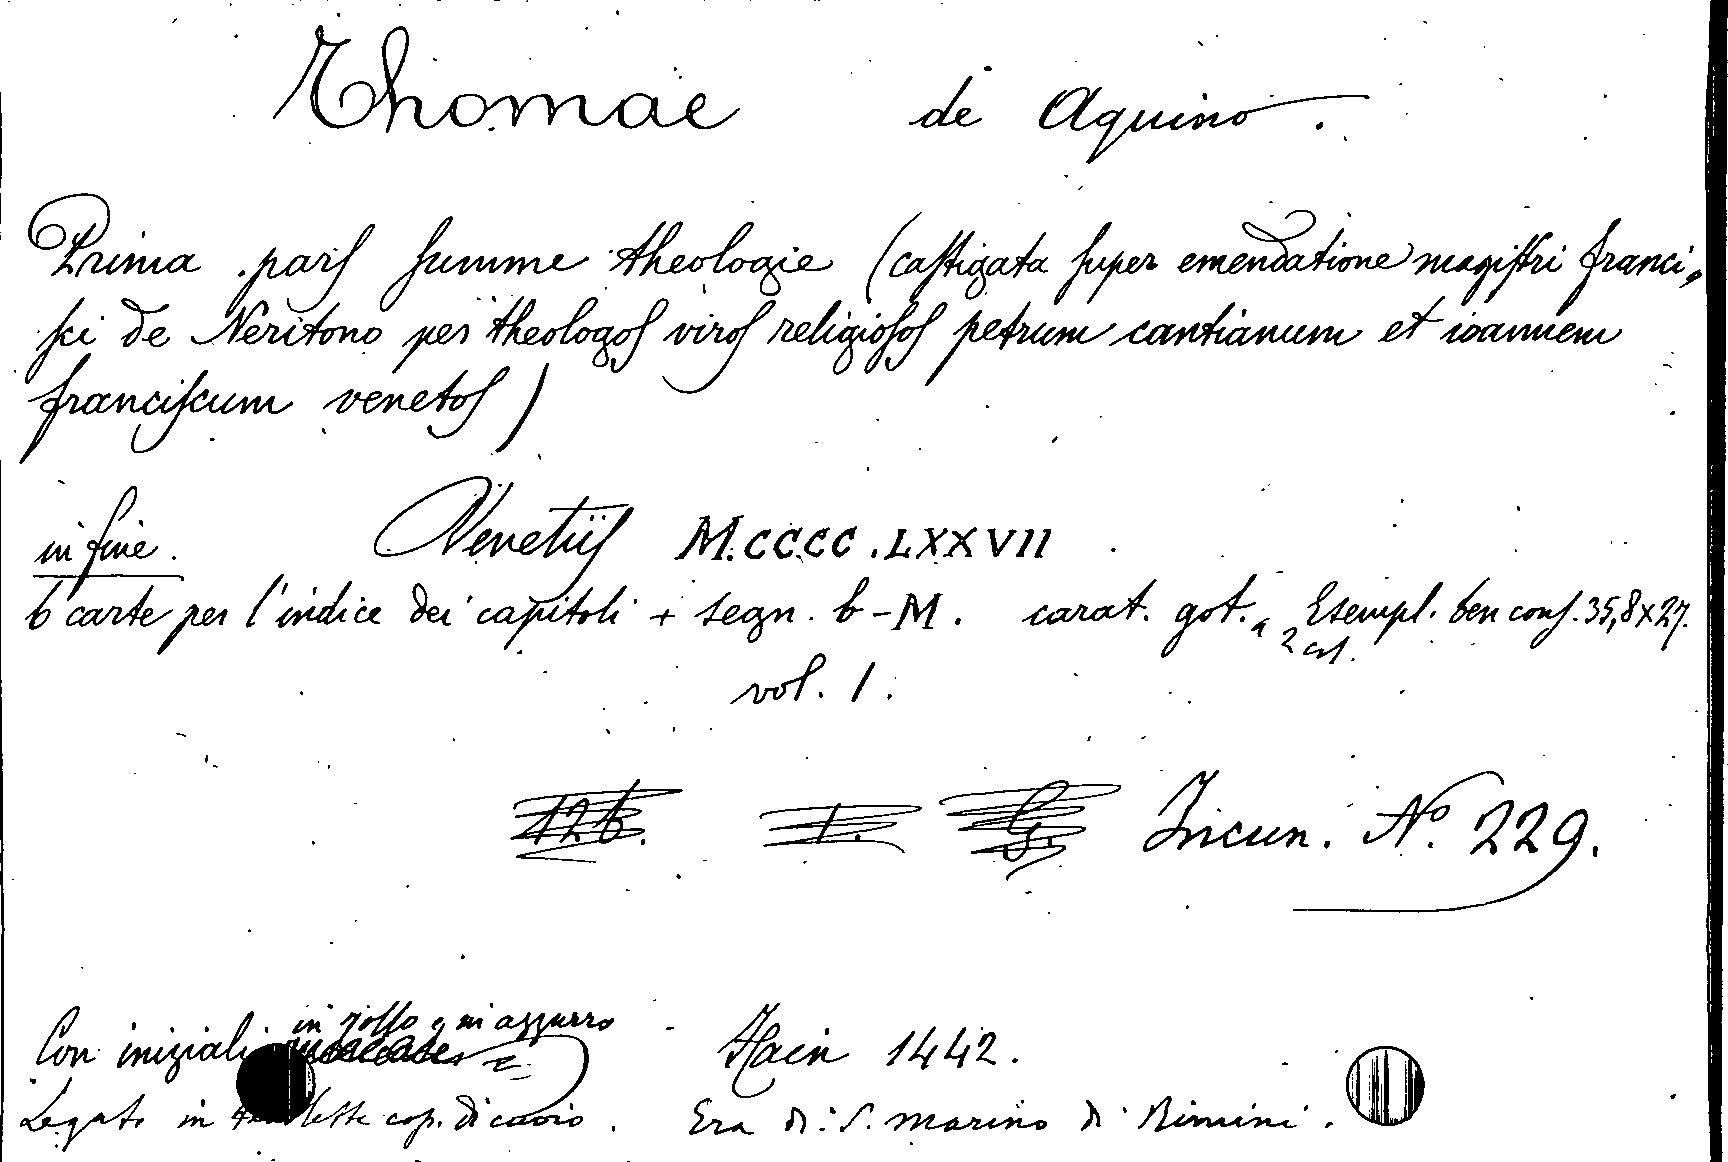 Thomae de Aquino.
Prima pars summe theologie (castigata super emendatione magistri franci-
sci de Neritono per theologos viros religiosos petrum cantianum et ioannem
franciscum venetos)
in fine. Venetijs M.CCCC.LXXVII
6 carte per l'indice dei capitoli + segn. b-M. carat. got. a 2 col. Esempl. ben cons. 35,8x27.
vol. 1.
126. 1. G. Incun. No. 229.
in rosso e in azzurro
Con iniziali Hain 1442.
Legato in tavolette cop. di cuoio. Era di S. Marino di Rimini.